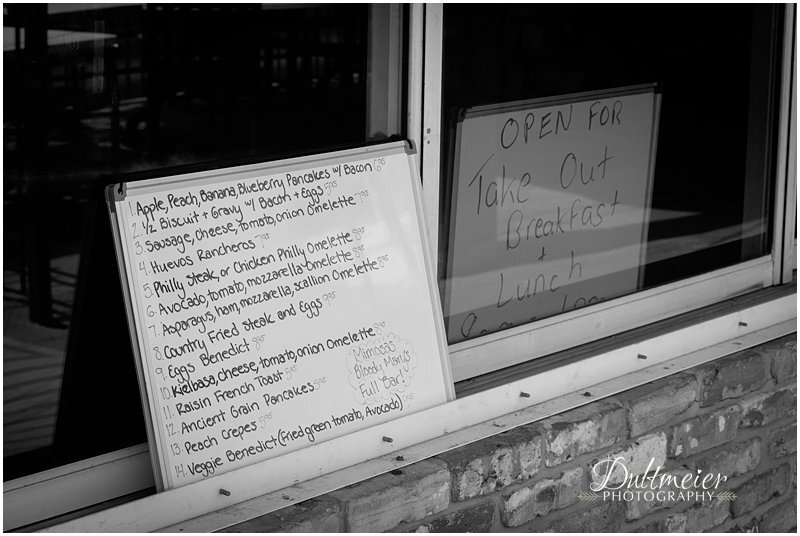 1. Apple, Peach, Banana, Blueberry Pancakes w/ Bacon 6.95
2. 1/2 Biscuit + Gravy w/ Bacon + Eggs 5.95
3. Sausage, cheese, tomato, onion Omelette 7.95
4. Huevos Rancheros 7.95
5. Philly Steak, or Chicken Philly Omelette 8.95
6. Avocado, tomato, mozzarella Omelette 8.95
7. Asparagus, ham, mozzarella, scallion Omelette 8.95
8. Country Fried Steak and Eggs 9.95
9. Eggs Benedict 8.95
10. Kielbasa, cheese, tomato, onion Omelette 8.95
11. Raisin French Toast 5.95
12. Ancient Grain Pancakes 5.95
13. Peach Crepes 5.95
14. Veggie Benedict (Fried green tomato, Avocado)
Mimosas
Bloody Mary's
Full Bar!
OPEN FOR
Take Out
Breakfast
+
Lunch
Dultmeier
PHOTOGRAPHY